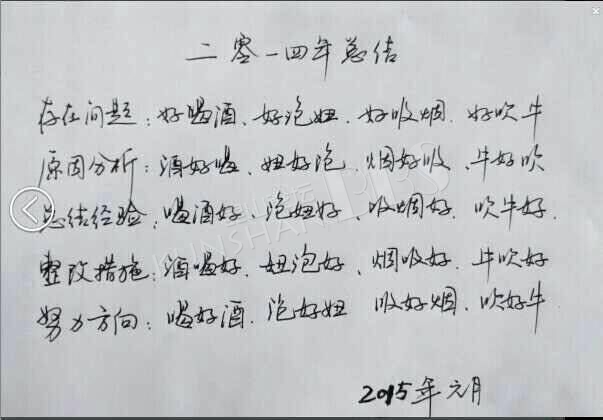 二零一四年总结
存在问题：好喝酒、好泡妞、好吸烟、好吹牛
原因分析：酒好喝、妞好泡、烟好吸、牛好吹
总结经验：喝酒好、泡妞好、吸烟好、吹牛好.
整改措施：酒喝好、妞泡好、烟吸好、牛吹好
努力方向：喝好酒、泡好妞 吸好烟、吹好牛
2015年元月